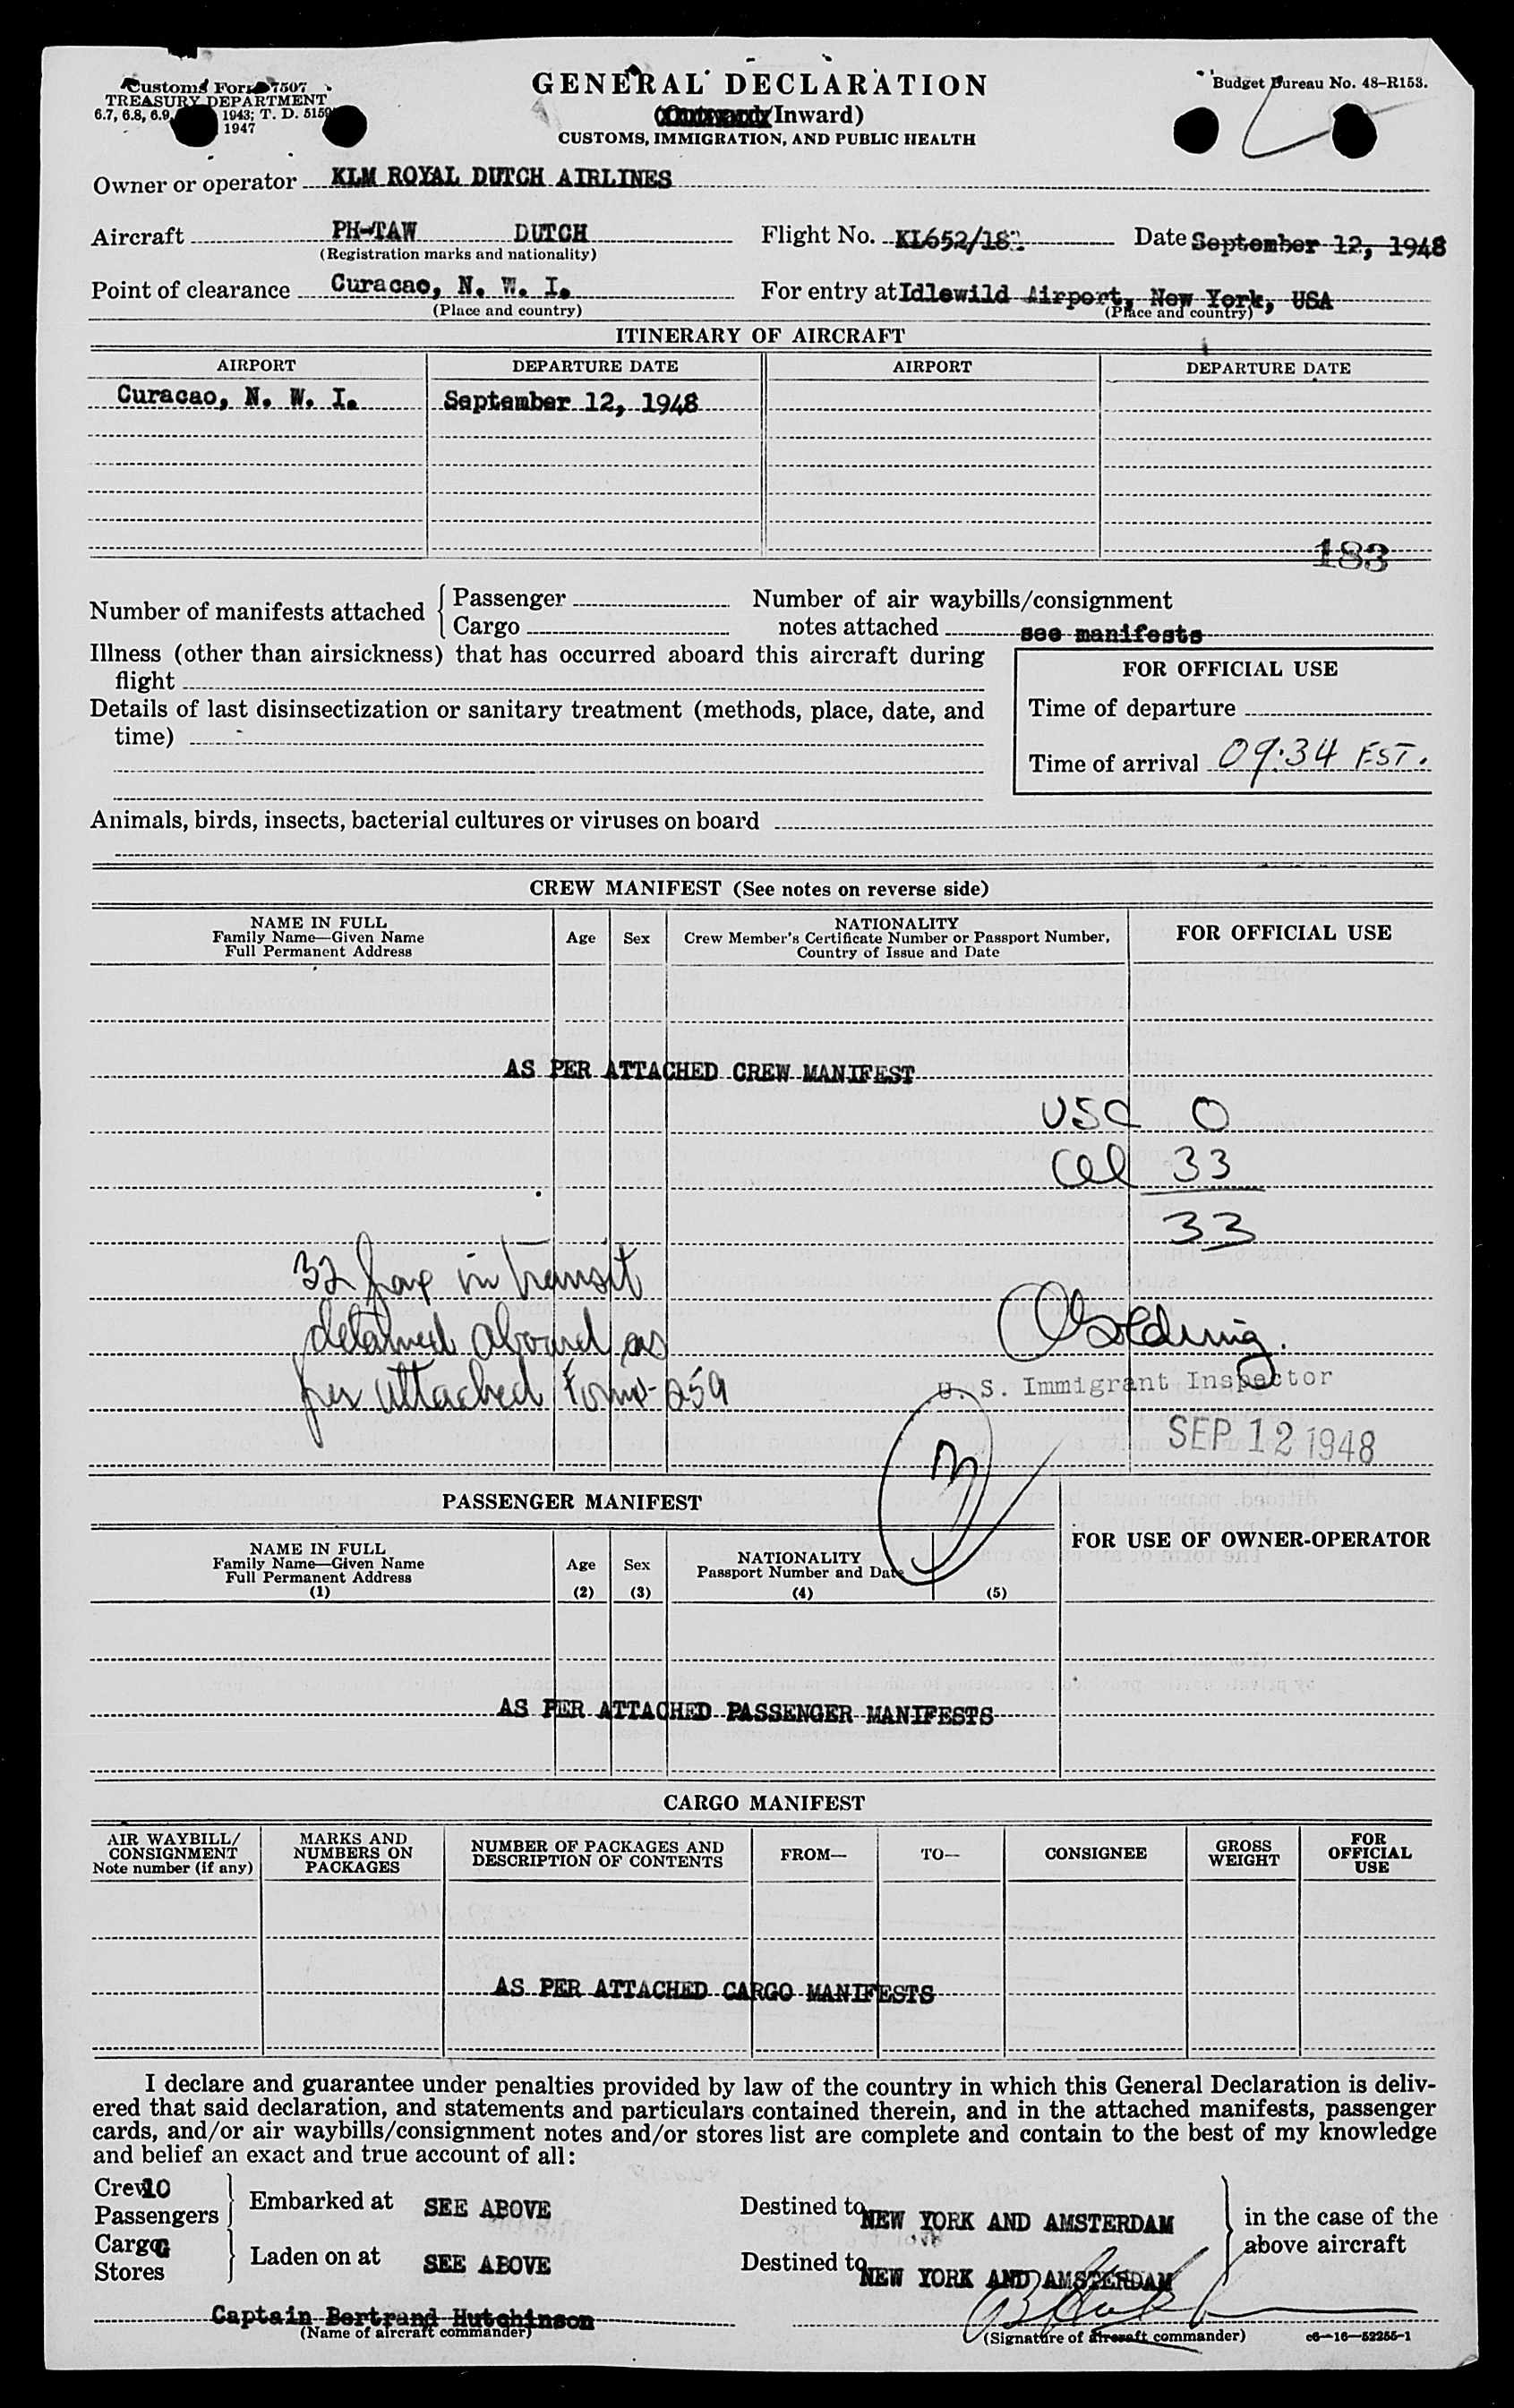 Customs Form 7507
TREASURY DEPARTMENT
6.7, 6.8, 6.9, 1943; T. D.
1947
GENERAL DECLARATION
(Outward/Inward)
CUSTOMS, IMMIGRATION, AND PUBLIC HEALTH
Budget Bureau No. 48-R153.
Owner or operator KLM ROYAL DUTCH AIRLINES
Aircraft PH-TAW DUTCH Flight No. KL652/18 Date September 12, 1948
(Registration marks and nationality)
Point of clearance Curacao, N. W. I. For entry at Idlewild Airport, New York, USA
(Place and country) (Place and country)
ITINERARY OF AIRCRAFT
AIRPORT DEPARTURE DATE AIRPORT DEPARTURE DATE
Curacao, N. W. I. September 12, 1948
183
Number of manifests attached { Passenger Number of air waybills/consignment
Cargo notes attached see manifests
Illness (other than airsickness) that has occurred aboard this aircraft during
flight
FOR OFFICIAL USE
Details of last disinsectization or sanitary treatment (methods, place, date, and
time)
Time of departure
Time of arrival 09:34 EST.
Animals, birds, insects, bacterial cultures or viruses on board
CREW MANIFEST (See notes on reverse side)
NAME IN FULL
Family Name—Given Name
Full Permanent Address
Age Sex
NATIONALITY
Crew Member's Certificate Number or Passport Number,
Country of Issue and Date
FOR OFFICIAL USE
AS PER ATTACHED CREW MANIFEST
USC 0
33
33
32 in transit
detained aboard as
per attached Form-259
Golding.
U. S. Immigrant Inspector
SEP 12 1948
PASSENGER MANIFEST
FOR USE OF OWNER-OPERATOR
NAME IN FULL
Family Name—Given Name
Full Permanent Address
(1)
Age
(2)
Sex
(3)
NATIONALITY
Passport Number and Date
(4)
(5)
AS PER ATTACHED PASSENGER MANIFESTS
CARGO MANIFEST
AIR WAYBILL/
CONSIGNMENT
Note number (if any)
MARKS AND
NUMBERS ON
PACKAGES
NUMBER OF PACKAGES AND
DESCRIPTION OF CONTENTS
FROM—
TO—
CONSIGNEE
GROSS
WEIGHT
FOR
OFFICIAL
USE
AS PER ATTACHED CARGO MANIFESTS
I declare and guarantee under penalties provided by law of the country in which this General Declaration is deliv-
ered that said declaration, and statements and particulars contained therein, and in the attached manifests, passenger
cards, and/or air waybills/consignment notes and/or stores list are complete and contain to the best of my knowledge
and belief an exact and true account of all:
Crew 10
Passengers } Embarked at SEE ABOVE Destined to NEW YORK AND AMSTERDAM } in the case of the
Cargo
Stores } Laden on at SEE ABOVE Destined to NEW YORK AND AMSTERDAM above aircraft
Captain Bertrand Hutchinson
(Name of aircraft commander) (Signature of aircraft commander) c6—16—52255-1